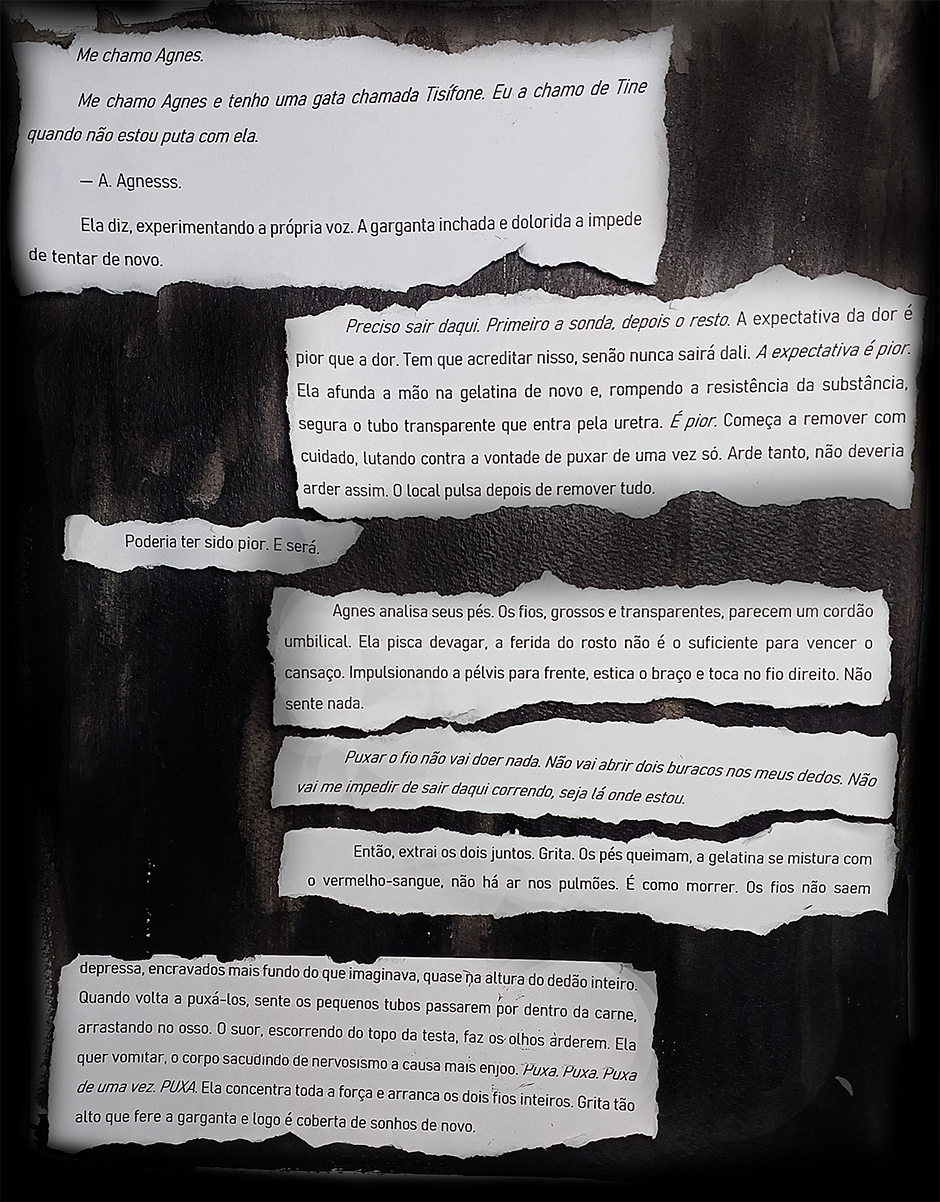 Me chamo Agnes.
Me chamo Agnes e tenho uma gata chamada Tisífone. Eu a chamo de Tine
quando não estou puta com ela.
— A. Agnesss.
Ela diz, experimentando a própria voz. A garganta inchada e dolorida a impede
de tentar de novo.
Preciso sair daqui. Primeiro a sonda, depois o resto. A expectativa da dor é
pior que a dor. Tem que acreditar nisso, senão nunca sairá dali. A expectativa é pior.
Ela afunda a mão na gelatina de novo e, rompendo a resistência da substância,
segura o tubo transparente que entra pela uretra. É pior. Começa a remover com
cuidado, lutando contra a vontade de puxar de uma vez só. Arde tanto, não deveria
arder assim. O local pulsa depois de remover tudo.
Poderia ter sido pior. E será.
Agnes analisa seus pés. Os fios, grossos e transparentes, parecem um cordão
umbilical. Ela pisca devagar, a ferida do rosto não é o suficiente para vencer o
cansaço. Impulsionando a pélvis para frente, estica o braço e toca no fio direito. Não
sente nada.
Puxar o fio não vai doer nada. Não vai abrir dois buracos nos meus dedos. Não
vai me impedir de sair daqui correndo, seja lá onde estou.
Então, extrai os dois juntos. Grita. Os pés queimam, a gelatina se mistura com
o vermelho-sangue, não há ar nos pulmões. É como morrer. Os fios não saem
depressa, encravados mais fundo do que imaginava, quase na altura do dedão inteiro.
Quando volta a puxá-los, sente os pequenos tubos passarem por dentro da carne,
arrastando no osso. O suor, escorrendo do topo da testa, faz os olhos arderem. Ela
quer vomitar, o corpo sacudindo de nervosismo a causa mais enjoo. Puxa. Puxa. Puxa
de uma vez. PUXA. Ela concentra toda a força e arranca os dois fios inteiros. Grita tão
alto que fere a garganta e logo é coberta de sonhos de novo.